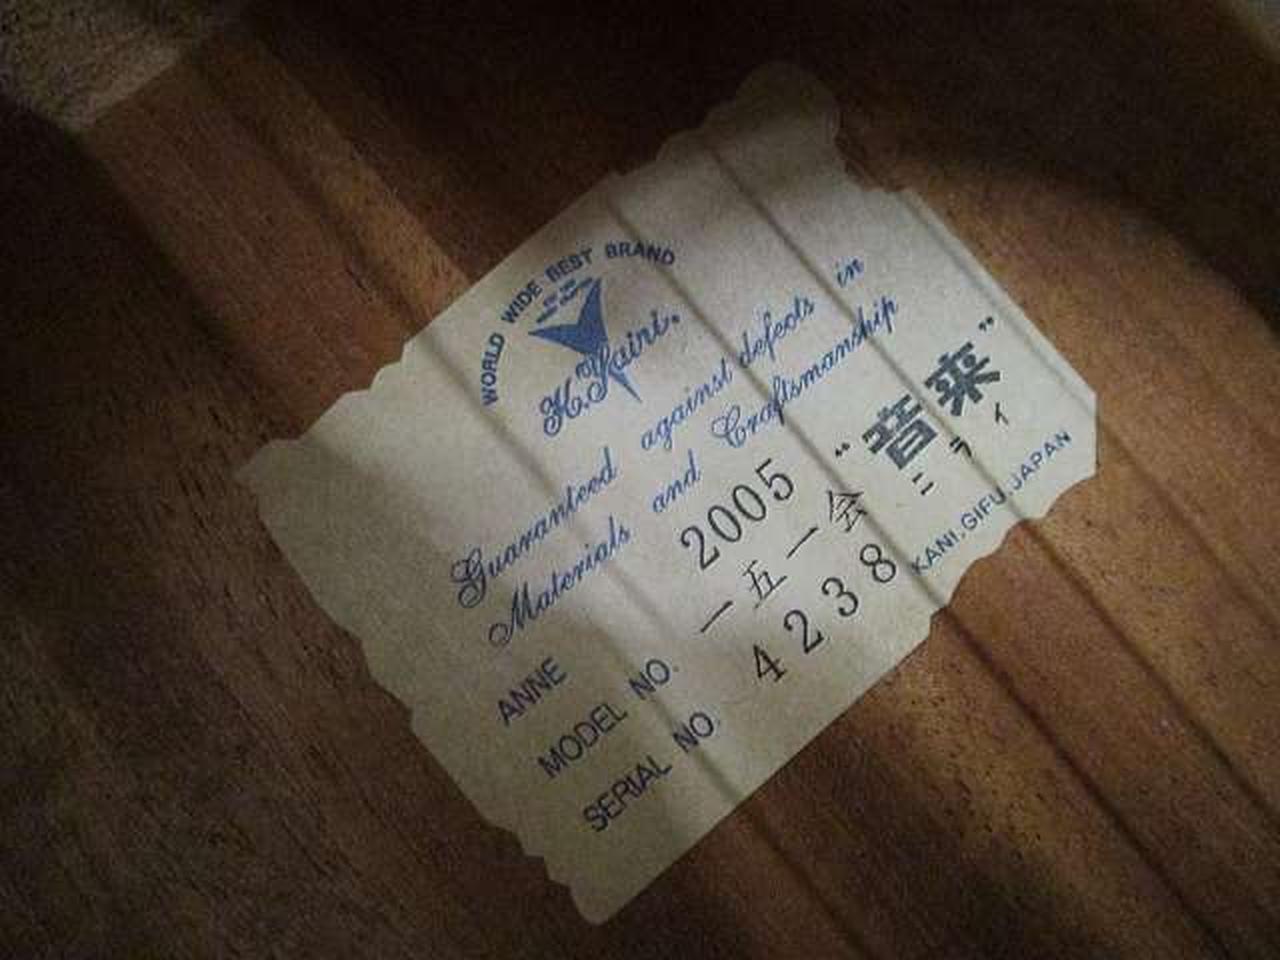 WORLD WIDE BEST BRAND
H. Yairi.
Guaranteed against defects in
Materials and Craftsmanship
ANNE 2005 “音来”
ニライ
MODEL NO. 一五一会
KANI. GIFU JAPAN
SERIAL NO. 4238